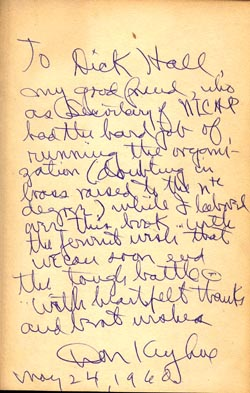 To Dick Hall,
my good friend, who
as Secretary of NICAP
had the hard job of
running the organi-
zation (doubling in
brass raised to the nth
degree) while I labored
over this book, with
the fervent wish that
we can soon end
the tough battle –
with heartfelt thanks
and best wishes
Don Keyhoe
May 24, 1960